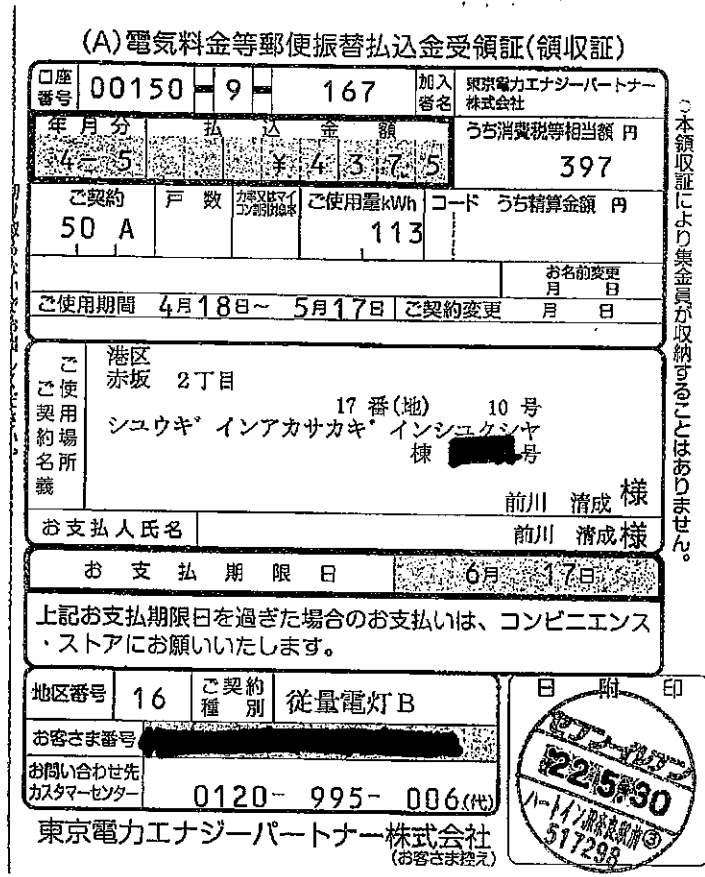 (A)電気料金等郵便振替払込金受領証(領収証)
口座番号 00150-9-167 加入者名 東京電力エナジーパートナー株式会社
年月分 払込金額 うち消費税等相当額 円
4-5 ¥4375 397
ご契約 戸数 ご使用量kWh コード うち精算金額 円
50 A 113
お名前変更
月 日
ご使用期間 4月18日~ 5月17日 ご契約変更 月 日
ご使用場所
ご契約名義
港区
赤坂 2丁目
17番(地) 10号
シユウギインアカサカギインシユクシヤ
棟 号
前川 清成 様
お支払人氏名 前川 清成様
お支払期限日 6月17日
上記お支払期限日を過ぎた場合のお支払いは、コンビニエンス
・ストアにお願いいたします。
地区番号 16 ご契約種別 従量電灯B
お客さま番号
お問い合わせ先
カスタマーセンター 0120-995-006(代)
東京電力エナジーパートナー株式会社
(お客さま控え)
日附印
セブン-イレブン
22.5.30
517298
本領収証により集金員が収納することはありません。